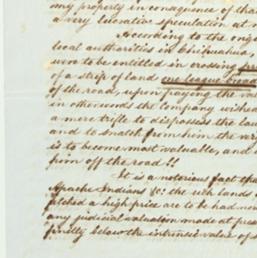 my property in consequence of that
a very lucrative speculation at m
According to the orig
local authorities in Chihuahua,
were to be entitled in crossing pr
of a strip of land one league broad
of the road, upon paying the
in otherwords the Company wished
a mere trifle to dispossess the la
and to snatch from him the ver
is to become most valuable, and
him off the road!!
It is a notorious fact tha
Apache Indians &c: the rich lands
fetched a high price are to be had now
any judicial valuation made at prese
finitely below the intrinsic value of s